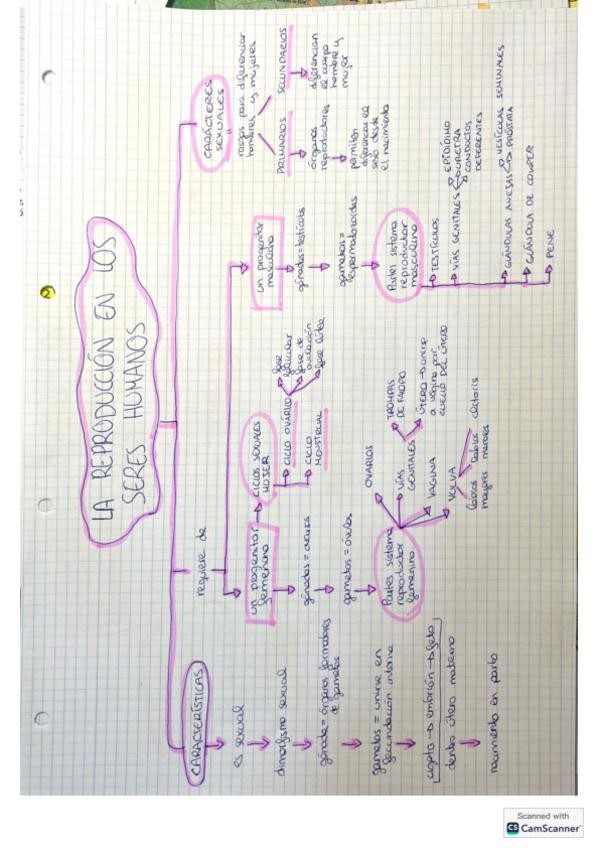 LA REPRODUCCIÓN EN LOS
SERES HUMANOS
CARACTERÍSTICAS
es sexual
dimorfismo sexual
gónada = órganos formadores
de gametos
gametos = unirse en
fecundación interna
cigoto → embrión → feto
dentro útero materno
nacimiento en parto
requiere de
un progenitor
femenino
gónadas = ovarios
gametos = óvulos
Partes sistema
reproductor
femenino
OVARIOS
VÍAS
GENITALES
TROMPAS
DE FALOPIO
ÚTERO → unirse
a vagina por
cuello del útero
VAGINA
VOLVA
labios
mayores
labios
menores
clítoris
CICLOS SEXUALES
MUJER
CICLO OVÁRICO
fase
folicular
fase de
ovulación
fase lútea
CICLO
MENSTRUAL
un progenitor
masculino
gónadas = testículos
gametos =
espermatozoides
Partes sistema
reproductor
masculino
TESTÍCULOS
VÍAS GENITALES
EPIDÍDIMO
URETRA
CONDUCTOS
DEFERENTES
GLÁNDULAS ANEJAS
VESÍCULAS SEMINALES
PRÓSTATA
GLÁNDULA DE COWPER
PENE
CARÁCTERES
SEXUALES
rasgos para diferenciar
hombres y mujeres
PRIMARIOS
órganos
reproductores
permiten
diferenciar el
sexo desde
el nacimiento
SECUNDARIOS
diferencian
el cuerpo
hombre y
mujer
Scanned with
CS CamScanner